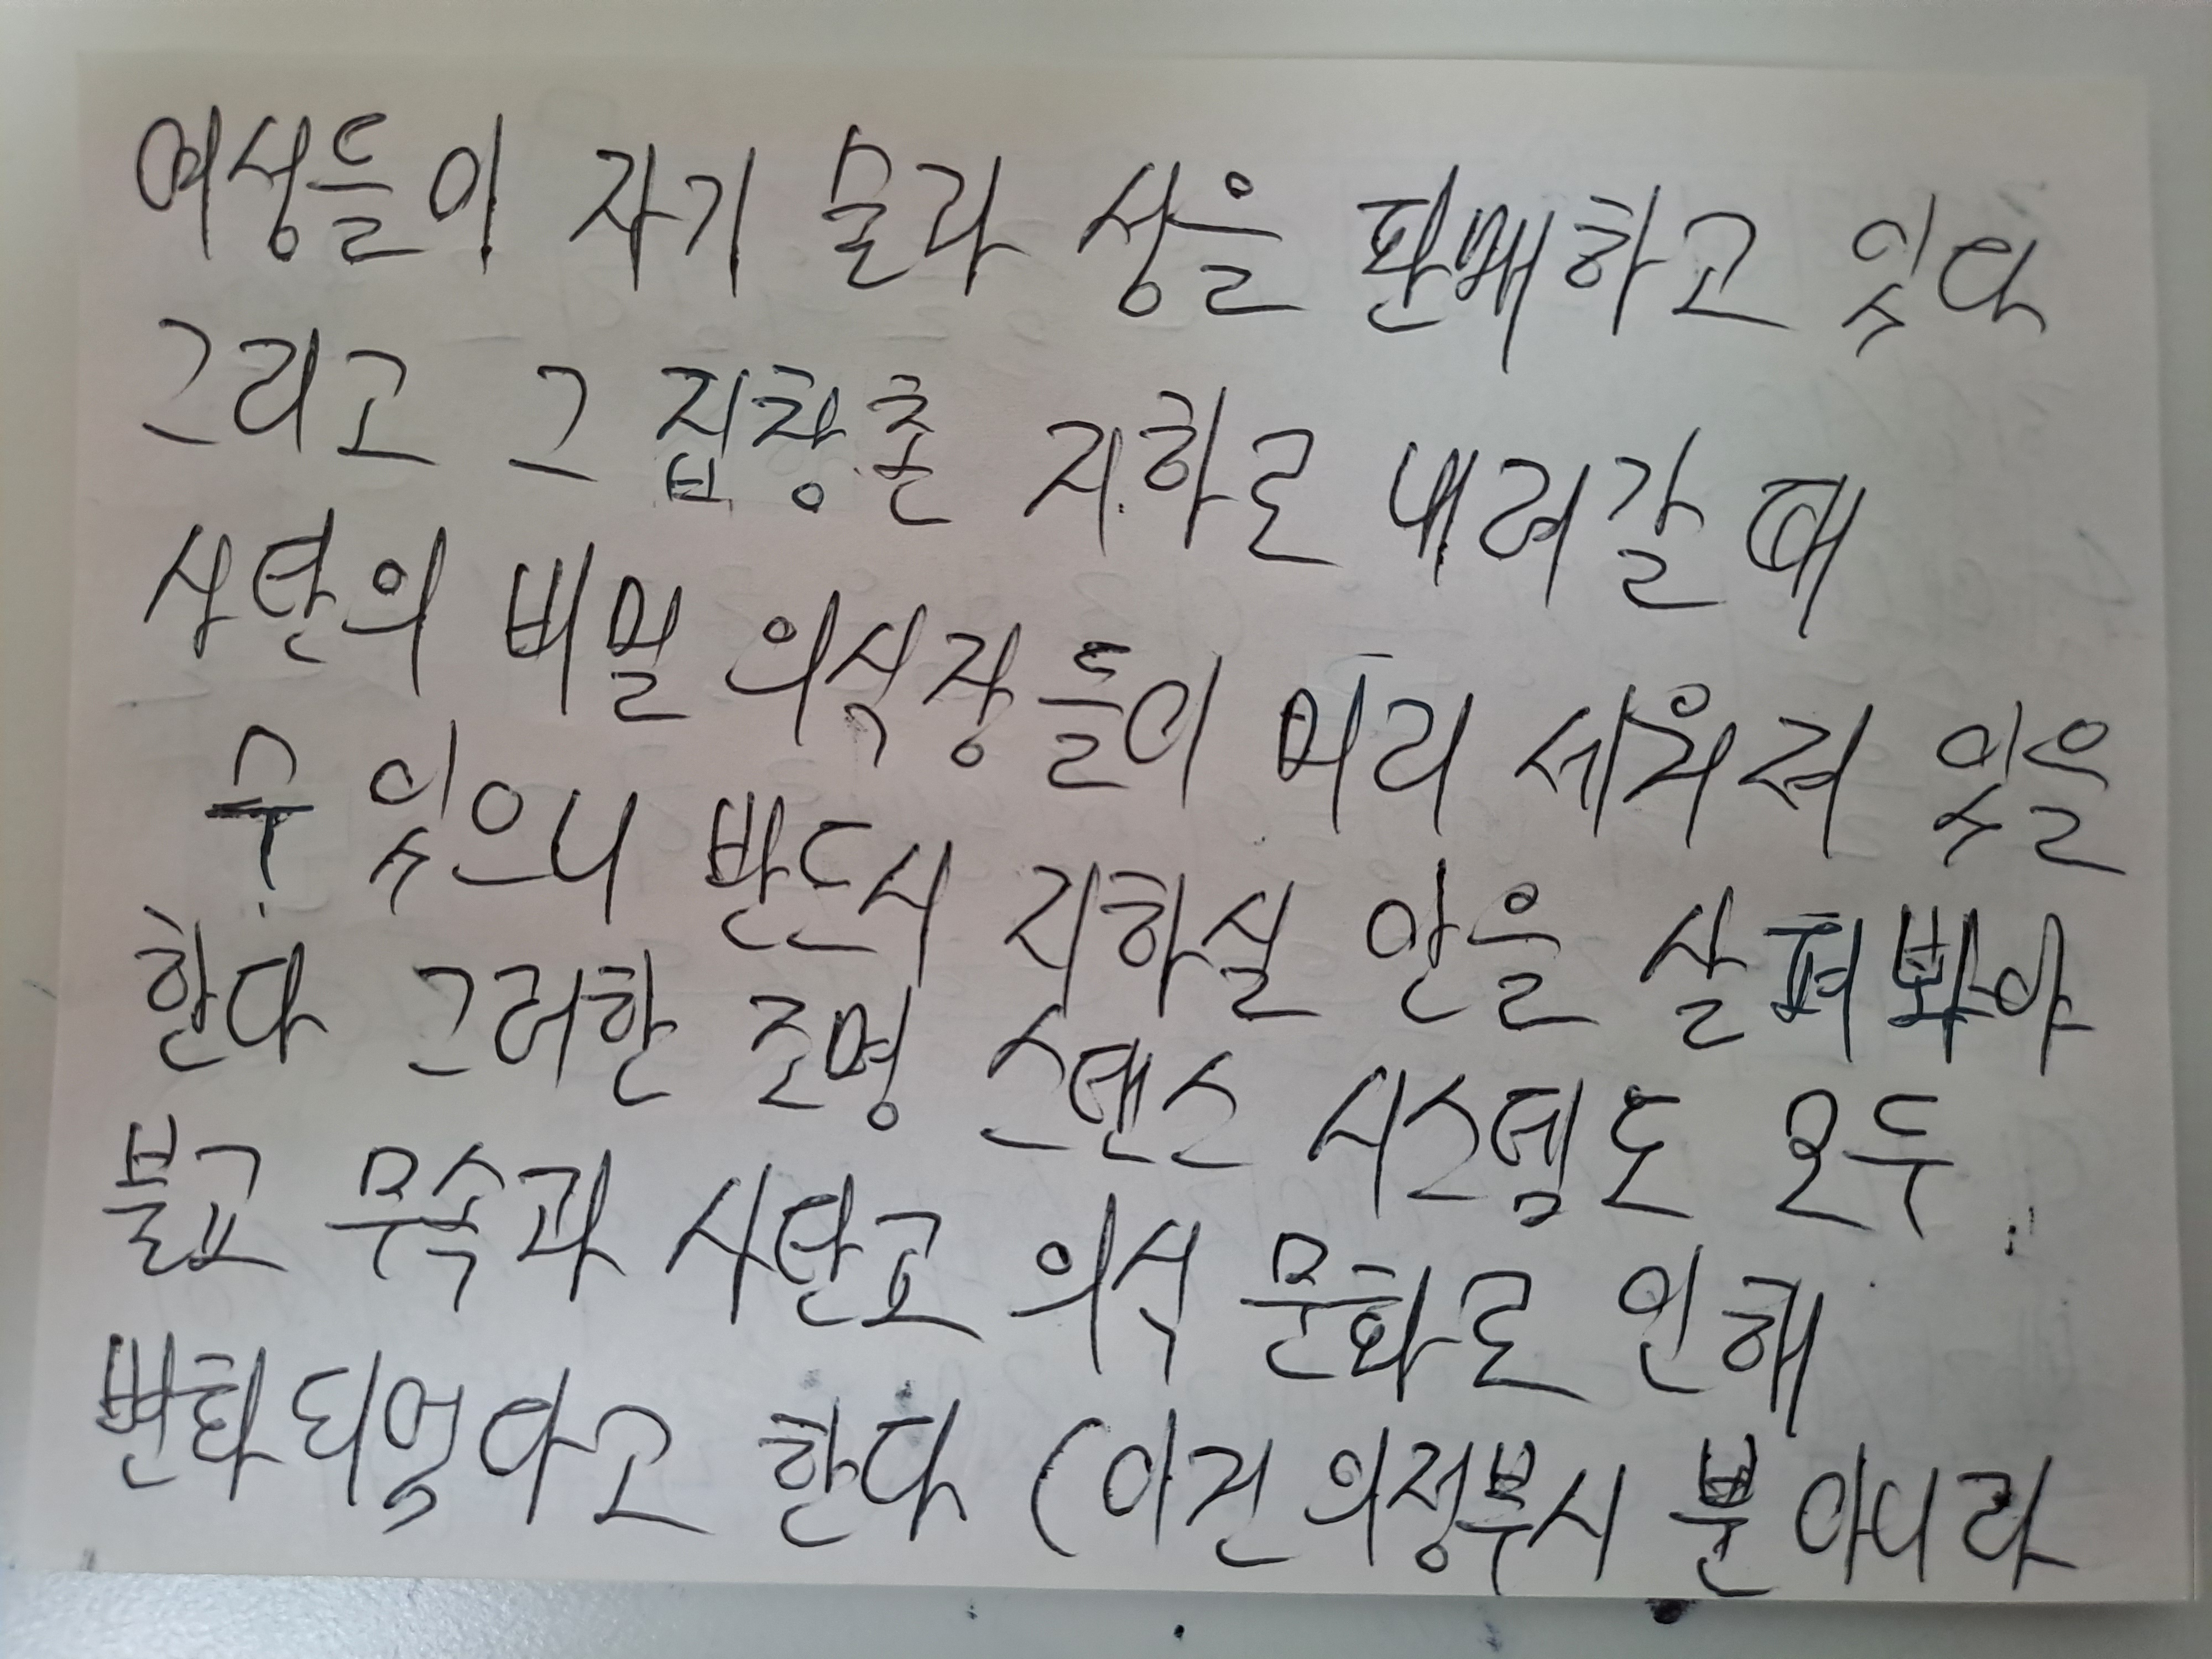 여성들이 자기 술과 성을 판매하고 있다
그리고 그 집창촌 지하로 내려갈 때
사탄의 비밀 의식장들이 미리 세워져 있을
수 있으니 반드시 지하실 안을 살펴봐야
한다 그러한 조명 스탠스 시스템도 모두
불교 무속과 사탄교 의식 문화로 인해
변화되었다고 한다 (이건 의정부시 뿐 아니라